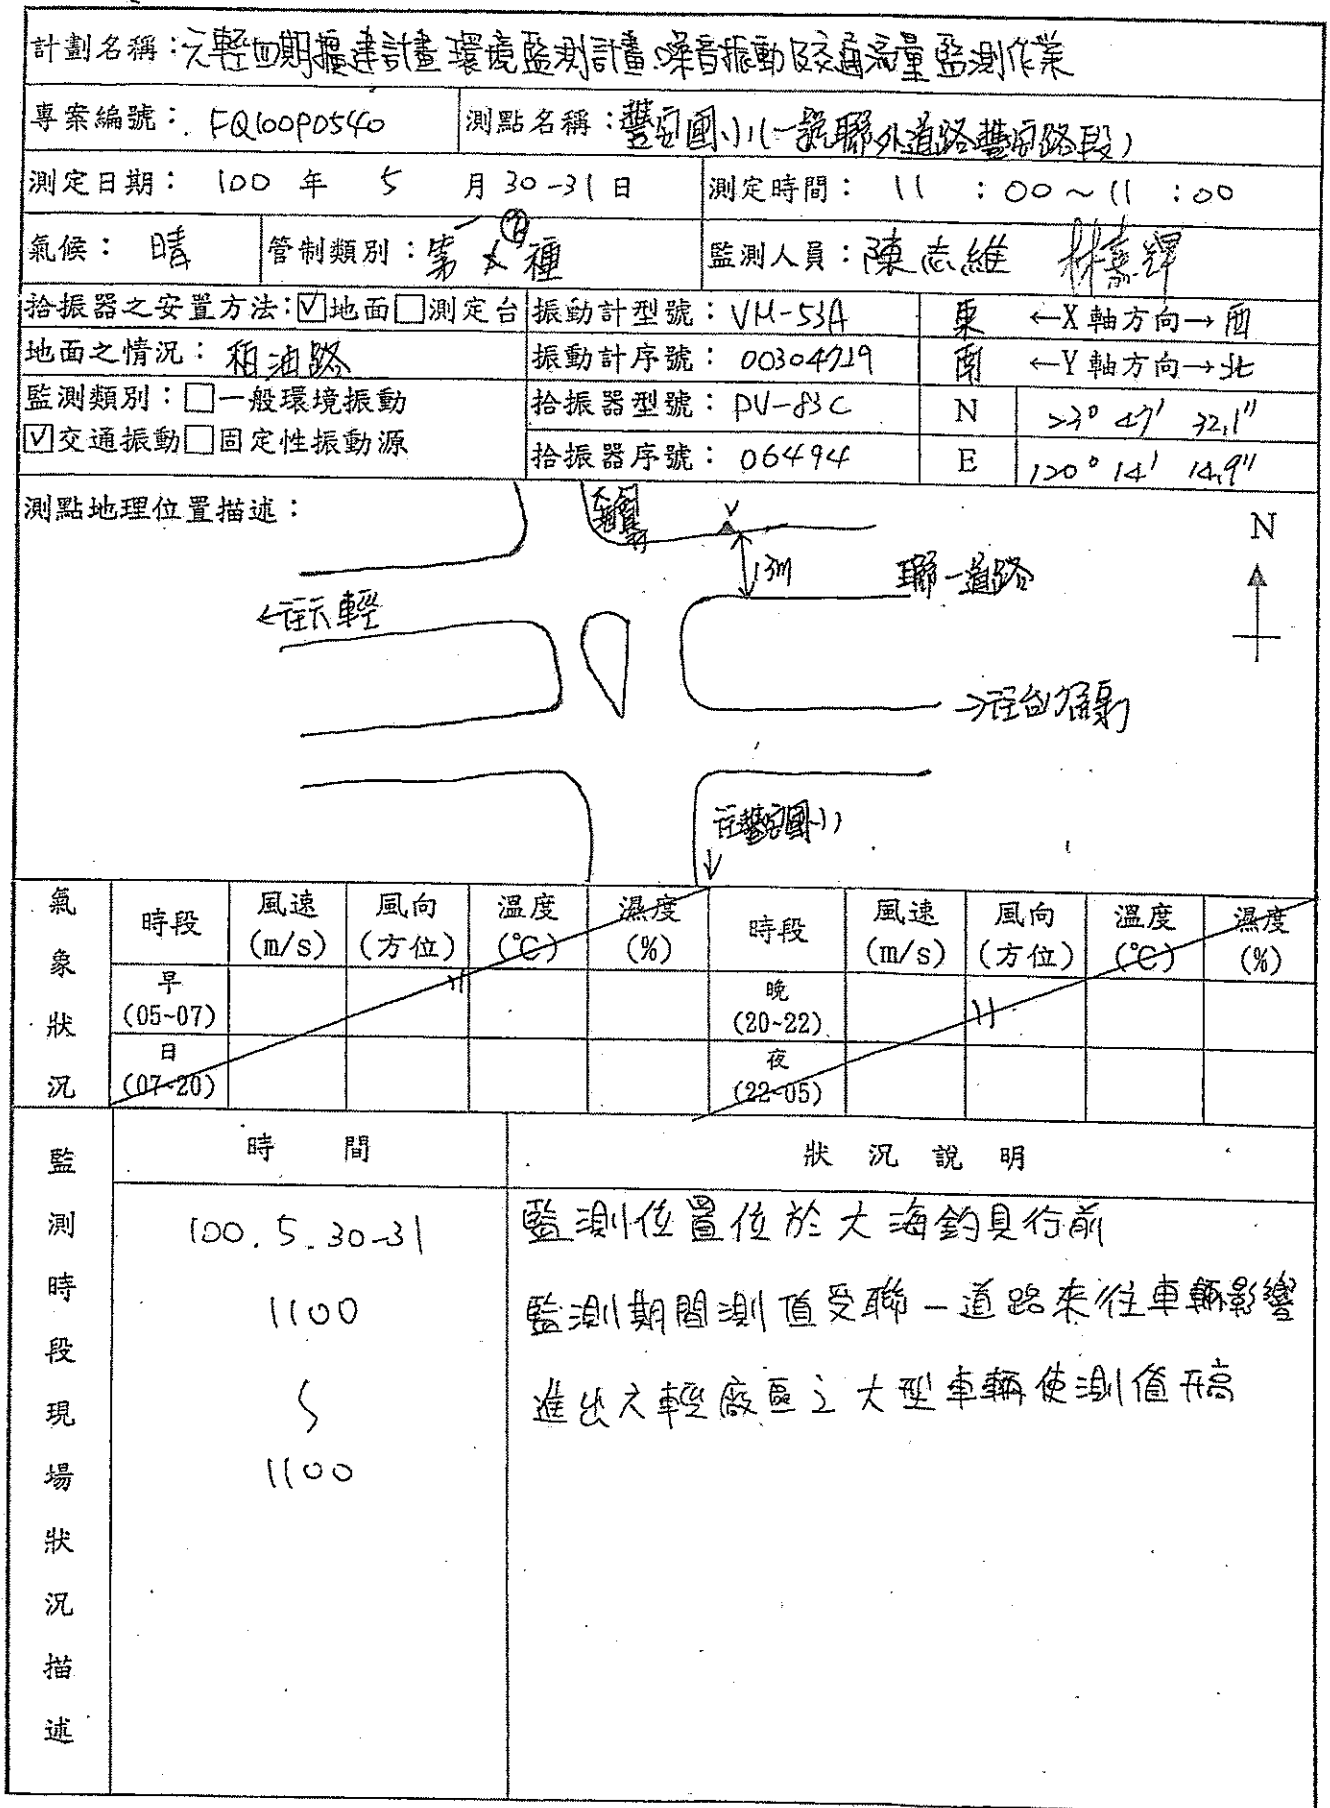 計劃名稱：六輕四期擴建計畫環境監測計畫噪音振動及交通流量監測作業
專案編號：FQ100P0540 測點名稱：豐安國小(一號聯外道路豐安路段)
測定日期：100 年 5 月 30-31 日 測定時間：11 :00～11 :00
氣候：晴 管制類別：第一種 監測人員：陳志維 林嘉輝
拾振器之安置方法:☑地面□測定台 振動計型號：VM-53A 東 ←X 軸方向→ 西
地面之情況：柏油路 振動計序號：00304729 南 ←Y 軸方向→ 北
監測類別：□一般環境振動 拾振器型號：PV-83C N 23° 47' 32.1"
☑交通振動□固定性振動源 拾振器序號：06494 E 120° 14' 14.9"
測點地理位置描述：
V
N
13m
聯一道路
←往六輕
→往台西
往豐安國小
氣象狀況
時段 風速(m/s) 風向(方位) 溫度(℃) 濕度(%) 時段 風速(m/s) 風向(方位) 溫度(℃) 濕度(%)
早(05~07) 晚(20~22)
日(07~20) 夜(22~05)
監測時段現場狀況描述
時 間 狀 況 說 明
100.5.30-31 監測位置位於大海釣具行前
1100 監測期間測值受聯一道路來往車輛影響
∫ 進出六輕廠區之大型車輛使測值升高
1100